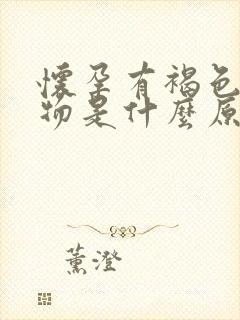 懷孕有褐色
物是什麼原
薰澄